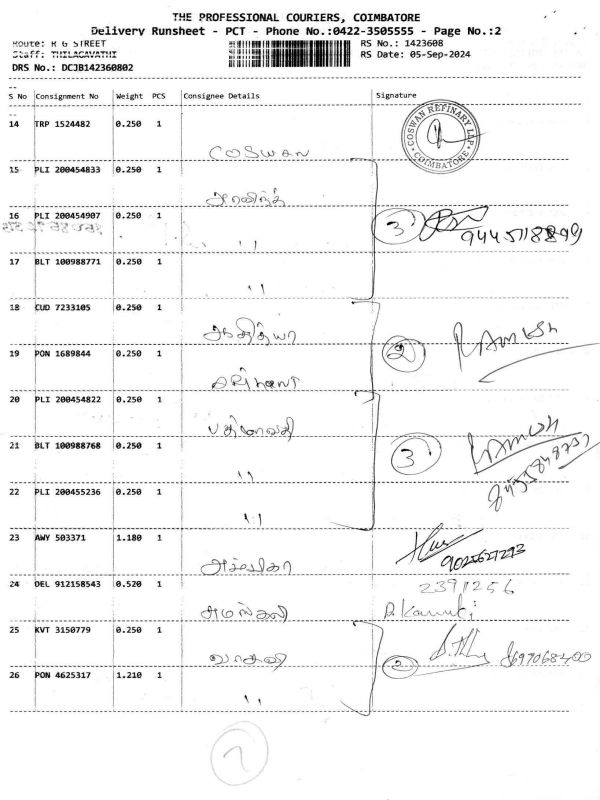 THE PROFESSIONAL COURIERS, COIMBATORE
Delivery Runsheet - PCT - Phone No.:0422-3505555 - Page No.:2
Route: R G STREET
RS No.: 1423608
Staff: THILAGAVATHI
RS Date: 05-Sep-2024
DRS No.: DCJB142360802
S No Consignment No Weight PCS Consignee Details Signature
14 TRP 1524482 0.250 1
COSWAN
COSWAN REFINARY LLP
COIMBATORE
15 PLI 200454833 0.250 1
அரவிந்த்
16 PLI 200454907 0.250 1
" 3
17 BLT 100988771 0.250 1
"
18 CUD 7233105 0.250 1
ஆதித்யா
2 RAMESH
19 PON 1689844 0.250 1
20 PLI 200454822 0.250 1
பத்மாவதி
RAMESH
21 BLT 100988768 0.250 1
" 3
22 PLI 200455236 0.250 1
"
23 AWY 503371 1.180 1
9025627293
24 DEL 912158543 0.520 1
2391256
25 KVT 3150779 0.250 1
2 8697068400
26 PON 4625317 1.210 1
"